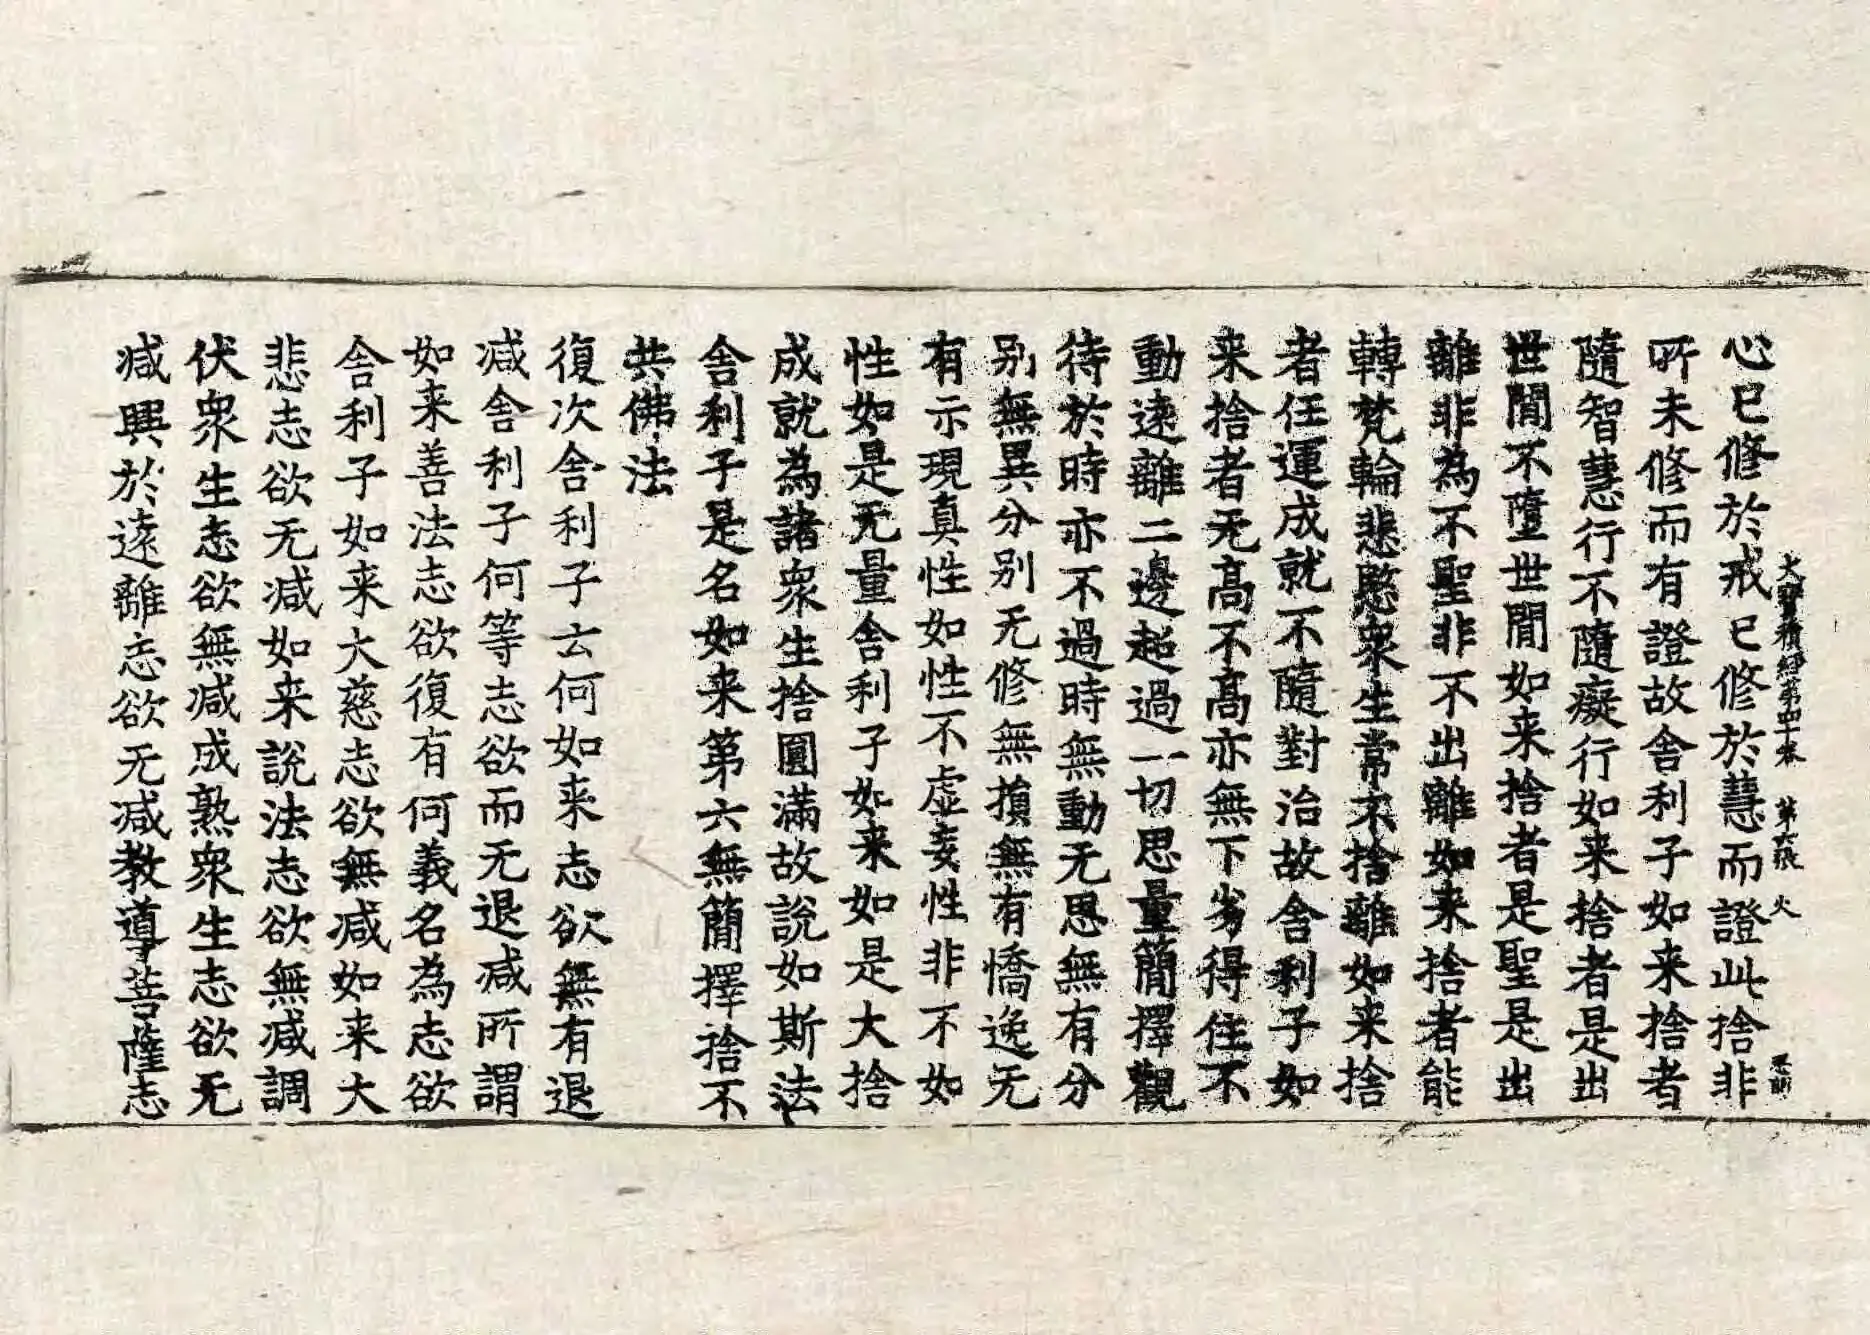 大寶積經第四十卷 第六張 火
心已修於戒已修於慧而證此捨非
所未修而有證故舍利子如来捨者
隨智慧行不隨癡行如来捨者是出
世間不墮世間如来捨者是聖是出
離非為不聖非不出離如来捨者能
轉梵輪悲愍衆生常不捨離如来捨
者任運成就不隨對治故舍利子如
来捨者无高不高亦無下劣得住不
動遠離二邊超過一切思量簡擇觀
待於時亦不過時無動无思無有分
别無異分别无修無損無有憍逸无
有示現真性如性不虛妄性非不如
性如是无量舍利子如来如是大捨
成就為諸衆生捨圓滿故說如斯法
舍利子是名如来第六無簡擇捨不
共佛法
復次舍利子云何如来志欲無有退
減舍利子何等志欲而无退減所謂
如来善法志欲復有何義名為志欲
舍利子如来大慈志欲無減如来大
悲志欲无減如来說法志欲無減調
伏衆生志欲無減成熟衆生志欲无
減興於遠離志欲无減教導菩薩志